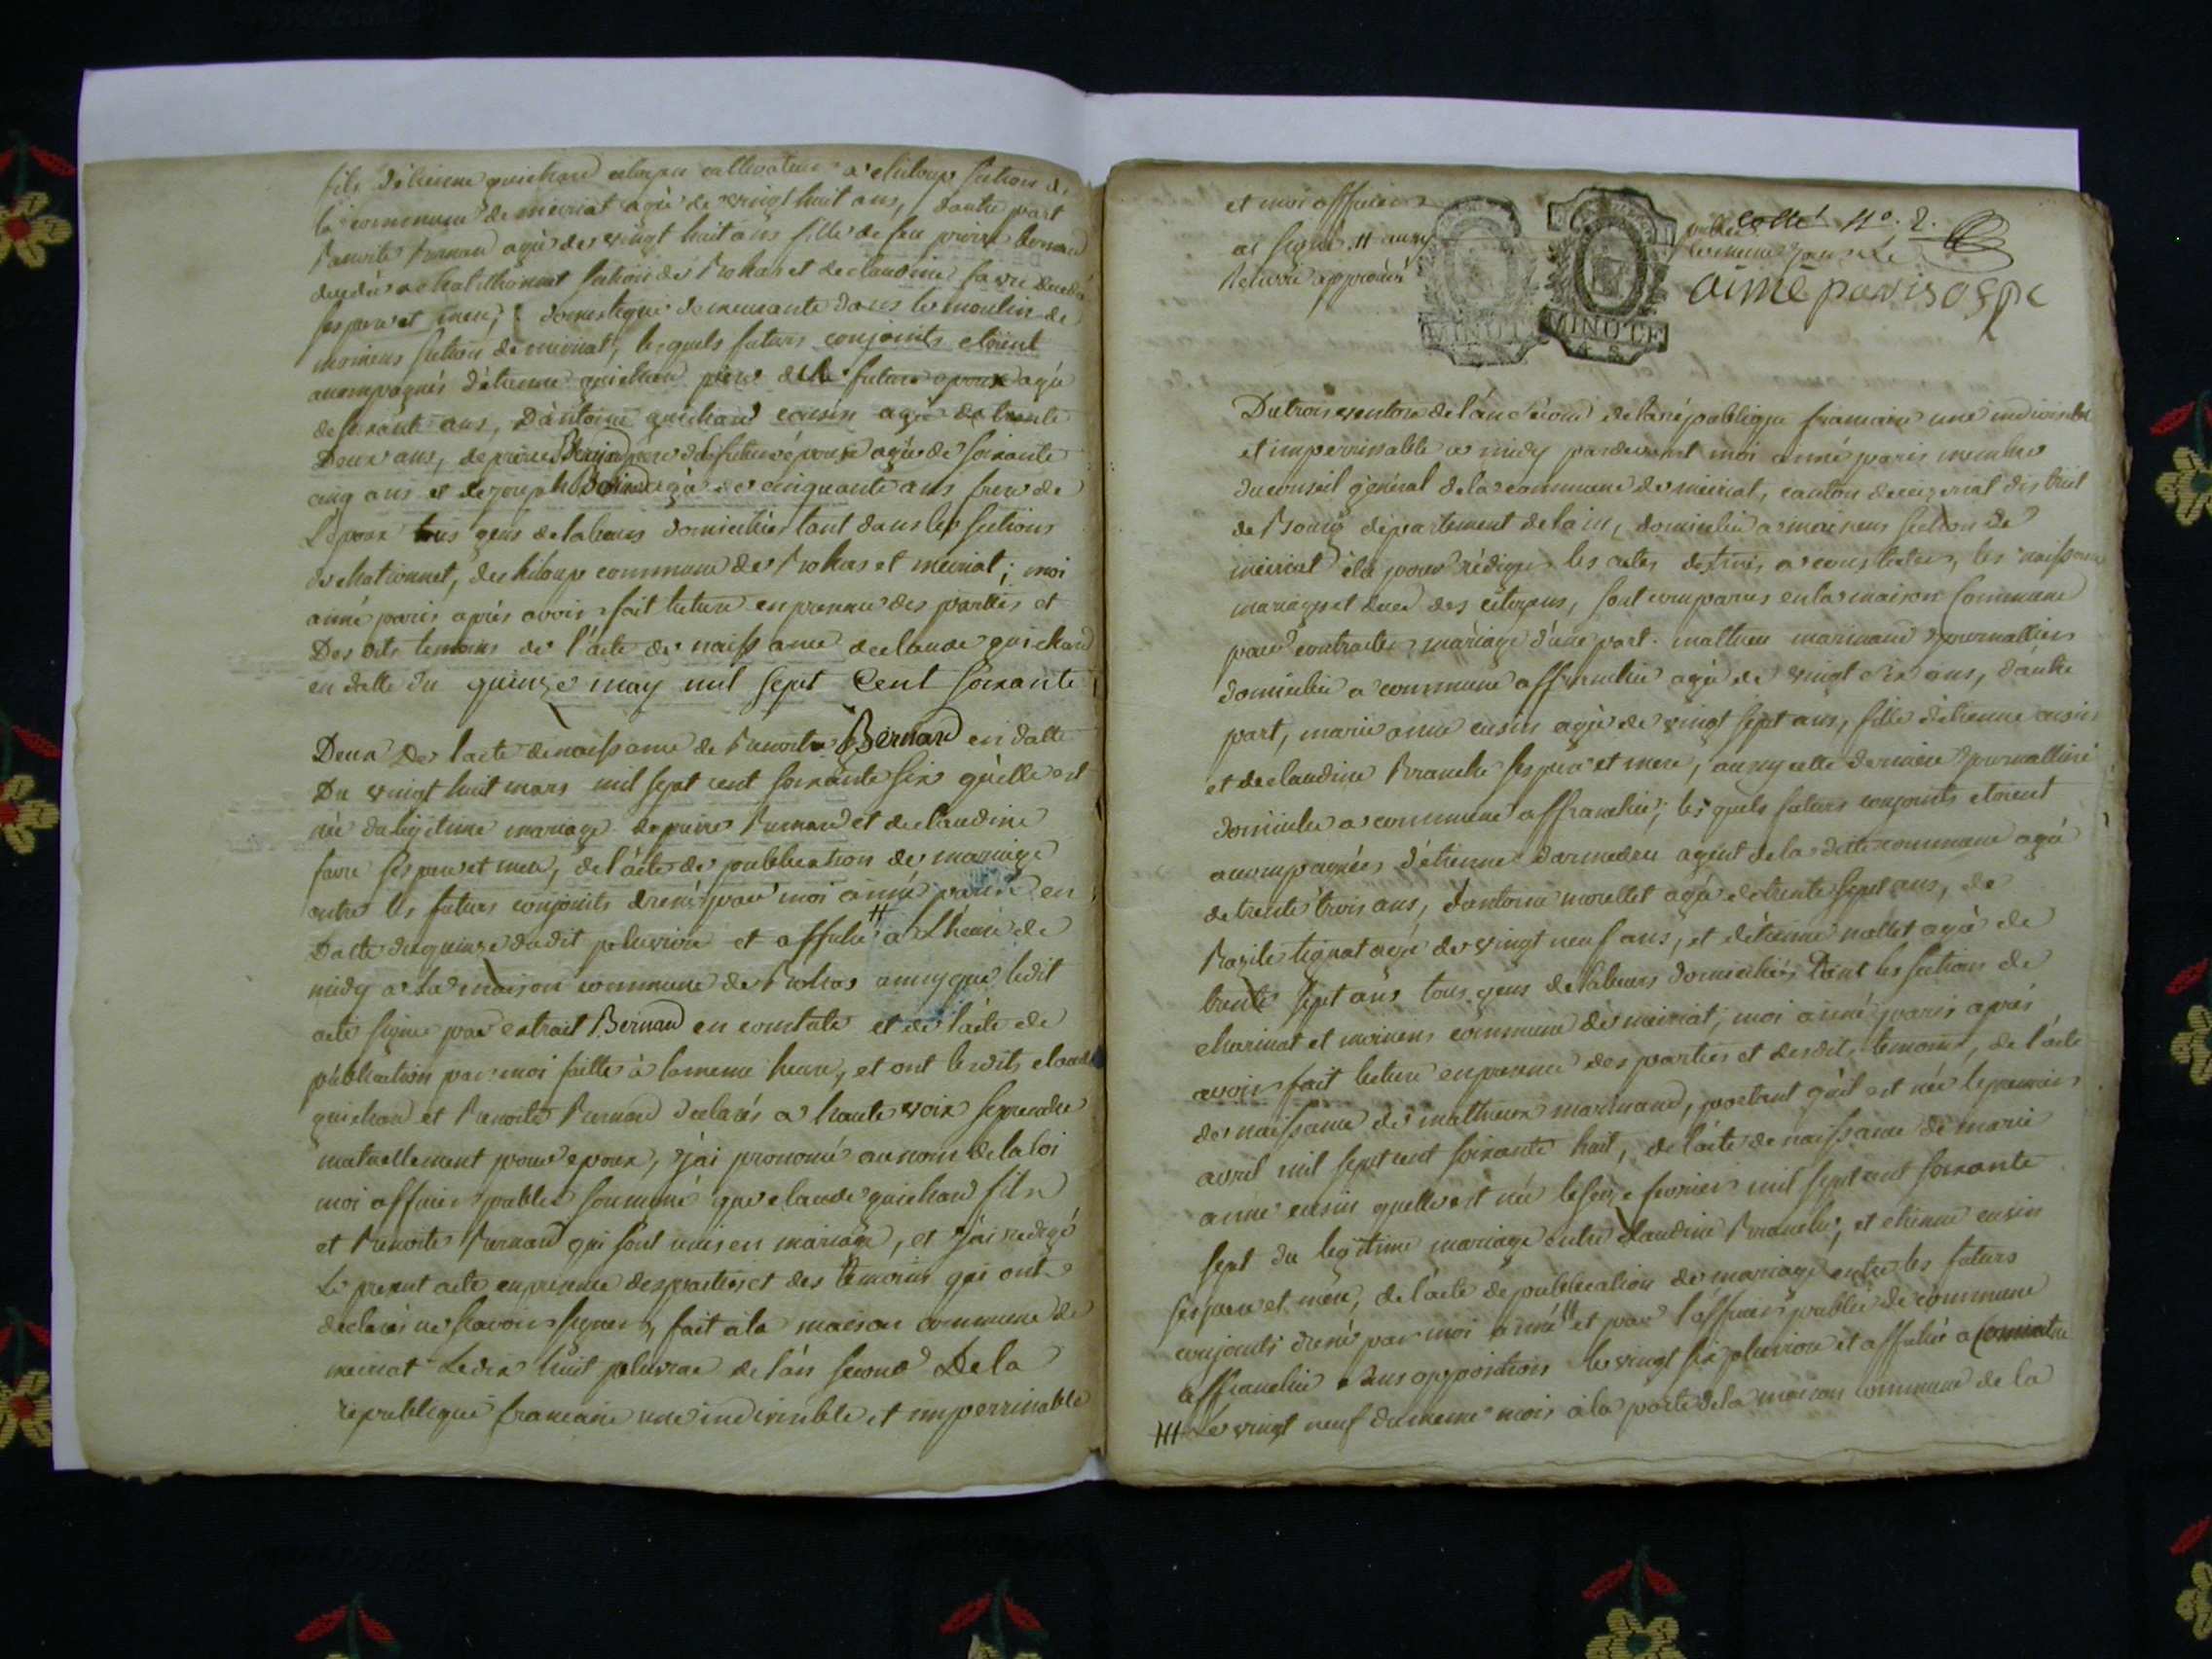 fils d'étienne guichard citoyen cultivateur a chiloup section de
la commune de meiriat agé de vingt huit ans, dautre part
Benoite Bernard agée de vingt huit ans fille de feu pierre bernard
decedé a chatillionnet section de Rohas et de claudine favre decedé
ses pere et mere, domestique demeurante dans le moulin de
moinens section de meiriat, lesquels futurs conjoints etoient
accompagnés d'étienne guichard père de la future epoux agé
de soixante ans, d'antoine guichard cousin agé de trente
Deux ans, de pierre Bernard pere de la future épouse agé de soixante
cinq ans et de joseph agé de cinquante ans frere de
L'époux tous gens de labeurs domiciliés tant dans les sections
de chationnet, de chiloup commune de Rohas et meiriat; moi
aimé paris aprés avoir fait lecture en presence des parties et
Des dits temoins de l'acte de naissance de claude guichard
en datte du quinze may mil sept Cent soixante
Deux De lacte de naissance de Benoite Bernard en datte
Du vingt huit mars mil sept cent soixante six qu'elle est
née du légitime mariage de pierre Bernard et de claudine
favre ses pere et mere, de l'acte de publication de mariage
entre les futurs conjoints dréné par moi aimé paris en
Datte du quinze dudit pluviose et affiché H a L'heure de
midy a La maison commune de Rohas ainsy que ledit
acte signé par extrait Bernard en constate et de l'acte de
publication par moi faitte à la meme heure, et ont lesdits claude
guichard et Benoite Bernard declarés a haute voix se prendre
mutuellement pour epoux, j'ai prononcé au nom de la loi
moi officier public soussigné que claude guichard fils
et Benoite Bernard qui sont unis en mariage, et j'ai redigé
Le present acte en presence des parties et des temoins qui ont
declarés ne scavoir signer, fait à la maison commune de
meiriat Le dix huit pluviose de l'an second De la
republique francaise une indivisible et imperrissable
et moi officier
ai signé H
Renvoi approuvé
MINUTE
MINUTE
4 S
cotté no. 2.
aimé paris o. p.
Du trois ventose de l'an second de la république francaise une indivisible
et imperrissable a midy pardevant moi aimé paris membre
du conseil général de la commune de meiriat, canton de ceizeriat district
de Bourg département de lain, domicilié a moinens section de
meiriat élu pour rédiger les actes destinés a constater, les naissances
mariages et deces des citoyens, sont comparus en la maison commune
pour contracter mariage d'une part. mathieu marinand journallier
domicilié a commune affranchie agé de vingt six ans, dautre
part, marie anne cusin agée de vingt sept ans, fille d'étienne cusin
et de claudine Branche ses pere et mere, aussy cette derniere journalliere
domiciliée a commune affranchie; lesquels futurs conjoints etoient
accompagnés d'étienne darmedru agent de la ditte commune agé
de trente trois ans, d'antoine morellet agé de trente sept ans, de
Bazile tignat agé de vingt neuf ans, et d'étienne nallet agé de
trente sept ans tous gens de labeurs domiciliés Dans les sections de
charinat et moinens commune de meiriat; moi aimé paris aprés
avoir fait lecture en presence des parties et desdits temoins, de l'acte
de naissance de mathieux marinand, portant qu'il est née le premier
avril mil sept cent soixante huit, de lacte de naissance de marie
anne cusin quelle est née le seize fevrier mil sept cent soixante
sept du legitime mariage entre claudine Branche, et etienne cusin
ses pere et mere, de l'acte de publication de mariage entre les futurs
conjoints dréné par moi aimé H et par l'officier public de commune
affranchie sans opposition le vingt six pluviose et affiché a
HI Le vingt neuf du meme mois a la porte de la maison commune de la